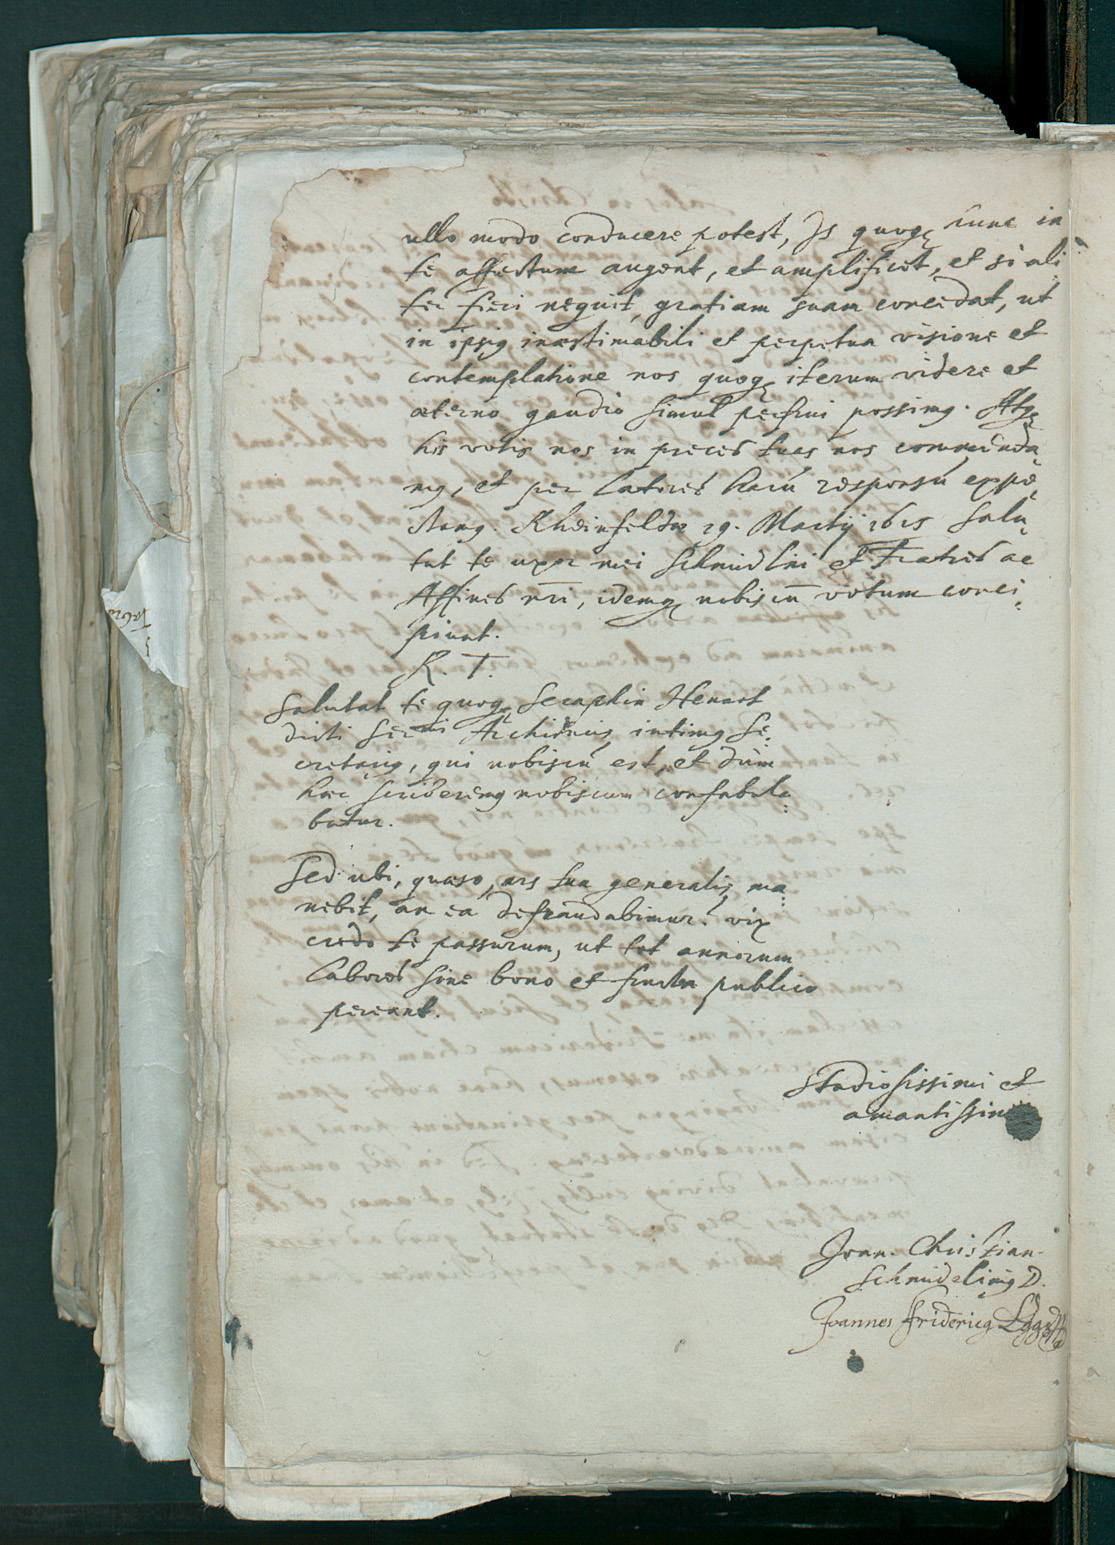 ullo modo conducere potest, Is quoqꝫ nunc in
te affectum augeat, et amplificet, et si ali
ter fieri nequit, gratiam suam concedat, ut
in ipsiꝰ inæstimabili et perpetua visione et
contemplatione nos quoqꝫ iterum videre et
æterno gaudio simul perfrui possimꝰ. Atqꝫ
his votis nos in preces tuas nos commenda
mꝰ, et per latores harū responsū expe
ctamꝰ. Rheinfeldæ 29. Martij 1615 Salu
tat te uxor mei Schmidlini et Fratres ac
Affines nr̄i, idemqꝫ nobiscū votum conci
piunt.
R. T.
Salutat te quoqꝫ Seraphin Henot
dicti Serᵐⁱ Archiducis intimꝰ Se
cretariꝰ, qui nobiscū est, et dum
hæc scriberemꝰ nobiscum confabula
batur.
Sed ubi, quæso, ars tua generalis ma
nebit, an ea defraudabimur? vix
credo te passurum, ut tot annorum
labores sine bono et fructu publico
pereant.
Studiosissimi et
amantissimi
Joan. Christian.
Schmidelinꝰ D.
Joannes Fridericꝰ